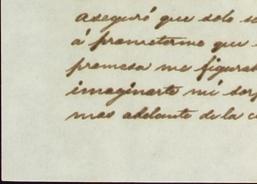 aseguró que solo
á prometerme que
promesa me figura
imaginarte mi
mas adelante de la